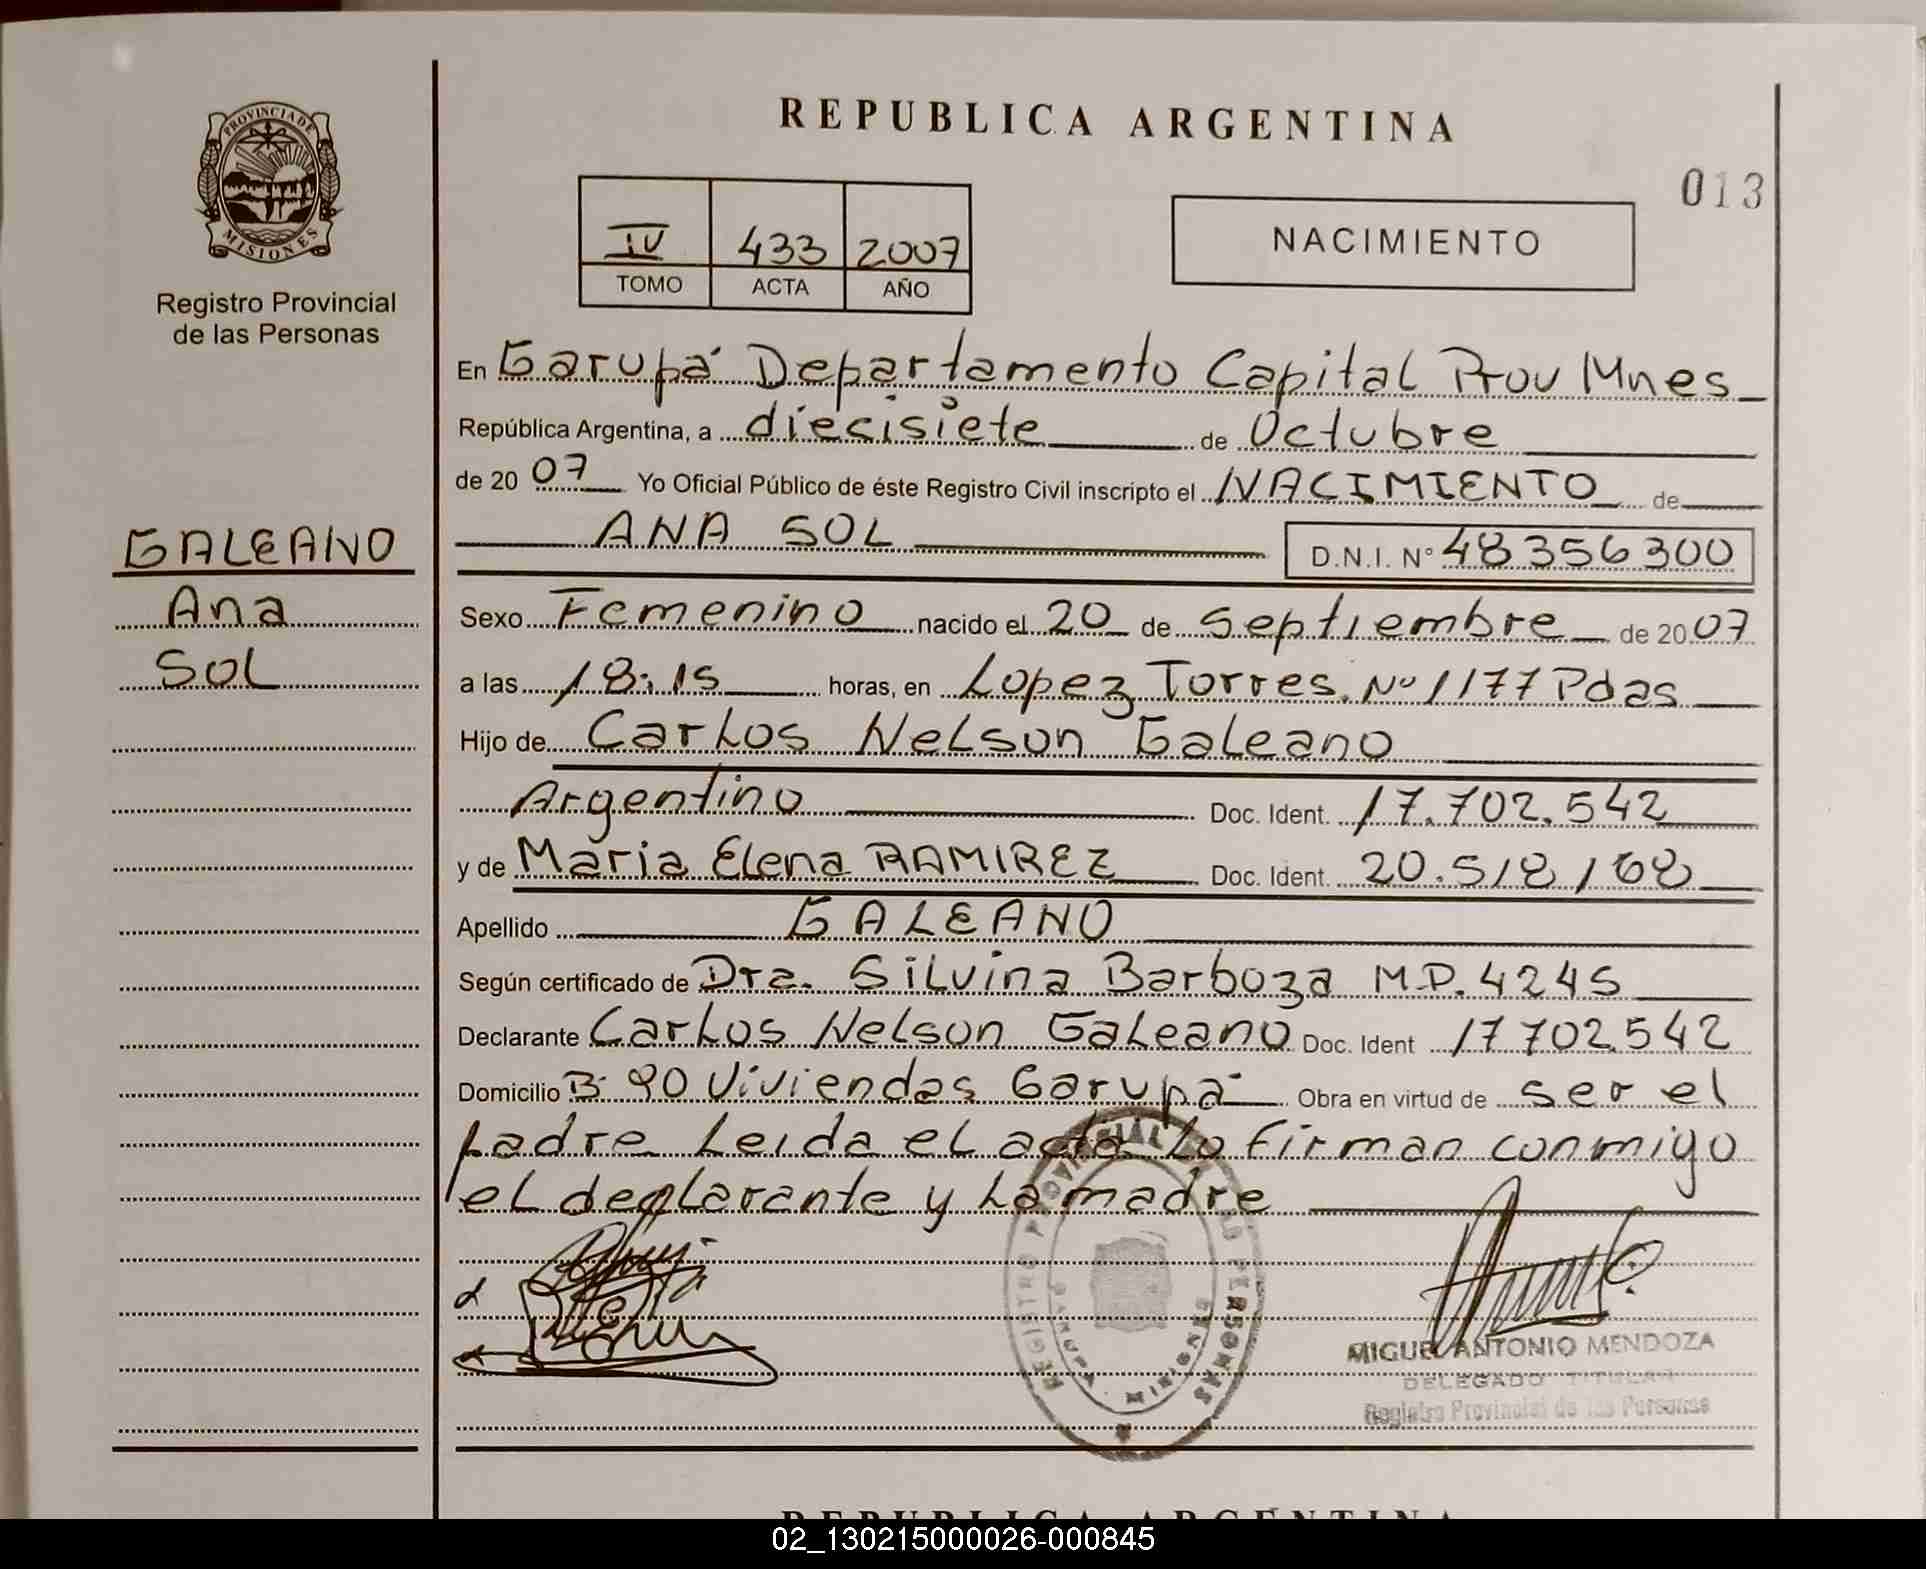 REPUBLICA ARGENTINA
013
PROVINCIA DE
MISIONES
Registro Provincial
de las Personas
IV 433 2007
TOMO ACTA AÑO
NACIMIENTO
GALEANO
Ana
SOL
En Garupá Departamento Capital Prov Mnes
República Argentina, a diecisiete de Octubre
de 20 07 Yo Oficial Público de éste Registro Civil inscripto el NACIMIENTO de
ANA SOL D.N.I. N° 48356300
Sexo Femenino nacido el 20 de Septiembre de 20 07
a las 18:15 horas, en Lopez Torres Nº 1177 Pdas
Hijo de Carlos Nelson Galeano
Argentino Doc. Ident. 17.702.542
y de Maria Elena RAMIREZ Doc. Ident. 20.518.168
Apellido GALEANO
Según certificado de Dra. Silvina Barboza M.P. 4245
Declarante Carlos Nelson Galeano Doc. Ident 17702.542
Domicilio B: 90 Viviendas Garupá Obra en virtud de ser el
padre Leida el acta Lo firman conmigo
el declarante y La madre
REGISTRO PROVINCIAL DE LAS PERSONAS
GARUPA - MISIONES
MIGUEL ANTONIO MENDOZA
DELEGADO TITULAR
Registro Provincial de las Personas
REPUBLICA ARGENTINA
02_130215000026-000845